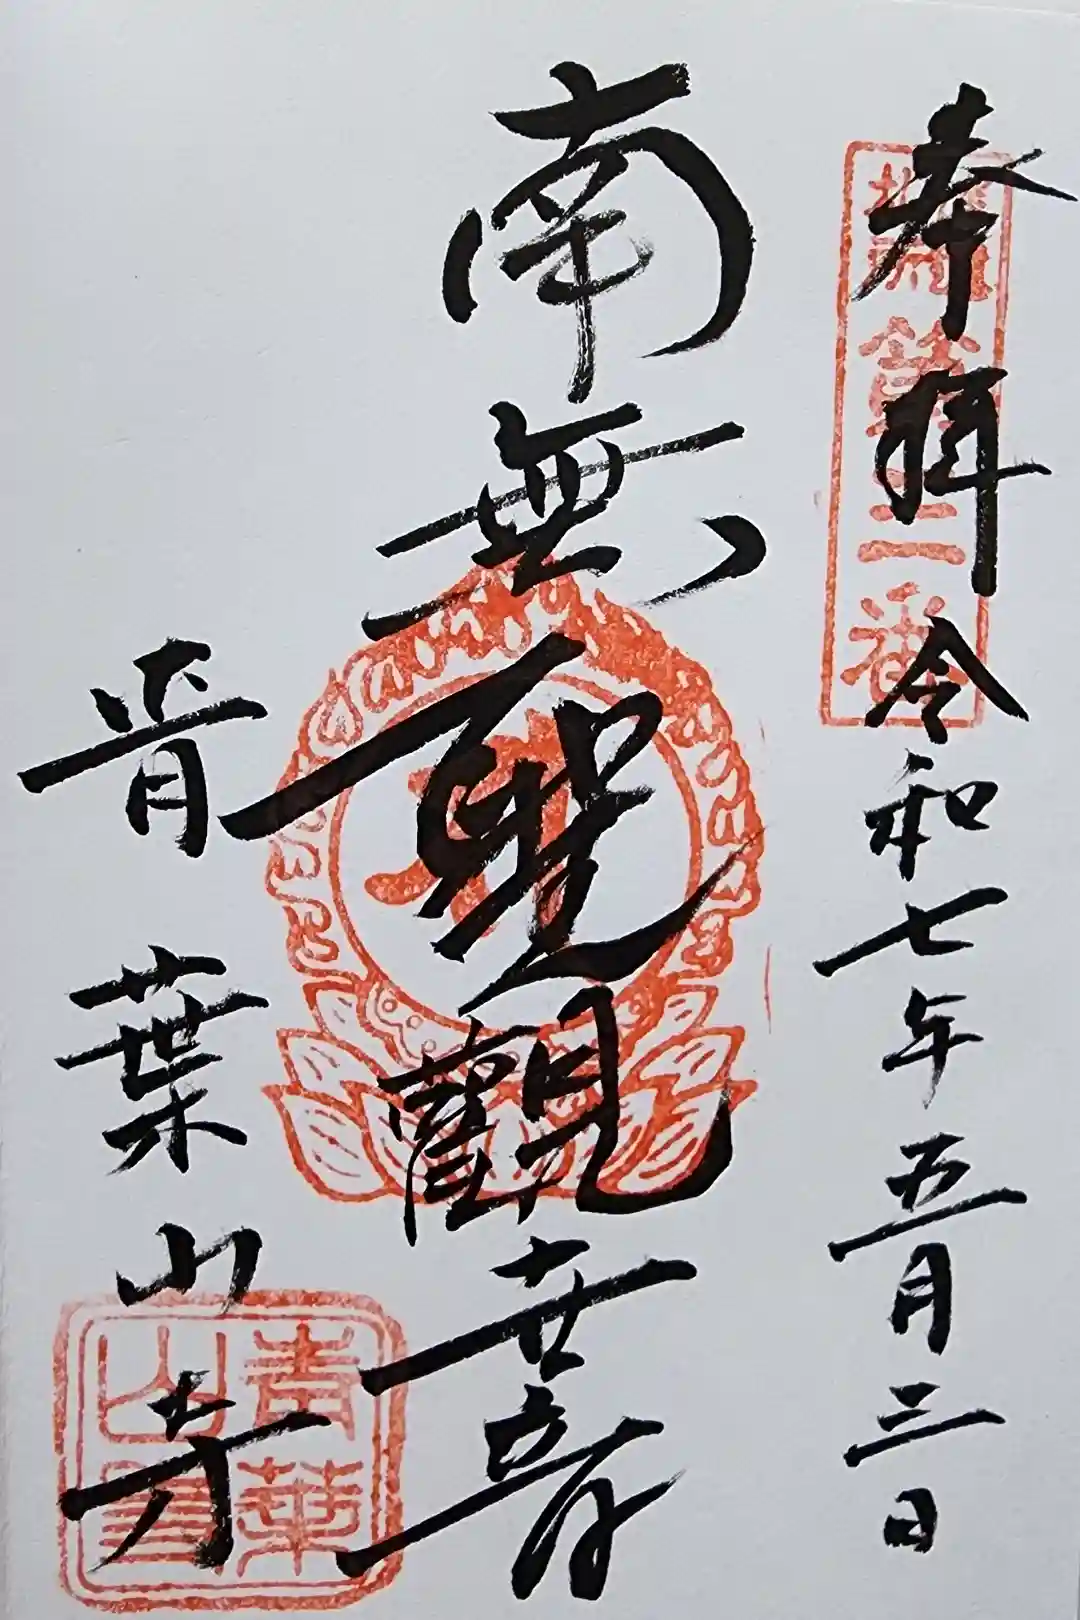 奉拝 令和七年五月三日
南無聖觀世音
青葉山寺
第二番
青葉山